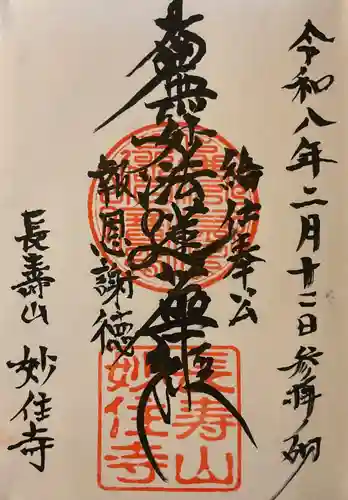 令和八年二月十二日参拝之砌
給仕奉公
南無妙法蓮華経
報恩謝徳
長壽山
妙住寺
長寿山
妙住寺